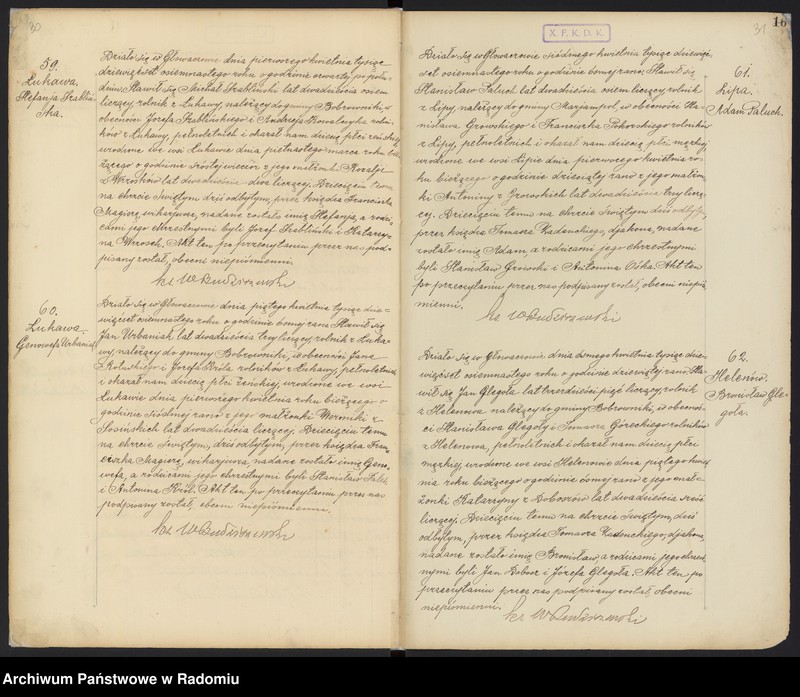 30
59.
Łukawa.
Stefanja Szabliń
ska.
Działo się w Głowaczowie dnia pierwszego kwietnia tysiąc
dziewięćset osiemnastego roku o godzinie czwartej po połu-
dniu. Stawił się Michał Szabliński lat dwadzieścia osiem
liczący, rolnik z Łukawy, należący do gminy Bobrowniki, w
obecności Józefa Szablińskiego i Andrzeja Kowalczyka rolni-
ków z Łukawy, pełnoletnich i okazał nam dziecię płci żeńskiej,
urodzone we wsi Łukawie dnia piętnastego marca roku bie-
żącego o godzinie szóstej wieczór z jego małżonki Rozalji
z Mrozków lat dwadzieścia dwa liczącej. Dziecięciu temu
na chrzcie świętym dziś odbytym, przez księdza Franciszka
Magierę wikarjusza, nadane zostało imię Stefanja, a rodzi-
cami jego chrzestnymi byli Józef Szabliński i Katarzy-
na Mrozek. Akt ten po przeczytaniu przez nas pod-
pisany został, obecni niepiśmienni.
ks W Budziszewski
60.
Łukawa.
Genowefa Urbaniak
Działo się w Głowaczowie dnia piątego kwietnia tysiąc dzie-
więćset osiemnastego roku o godzinie ósmej rano. Stawił się
Jan Urbaniak, lat dwadzieścia trzy liczący, rolnik z Łuka-
wy, należący do gminy Bobrowniki, w obecności Jana
i Józefa Króla rolników z Łukawy, pełnoletnich
i okazał nam dziecię płci żeńskiej, urodzone we wsi
Łukawie dnia pierwszego kwietnia roku bieżącego o
godzinie siódmej rano z jego małżonki Weroniki z
lat dwadzieścia liczącej. Dziecięciu temu
na chrzcie świętym, dziś odbytym, przez księdza Fran-
ciszka Magierę, wikarjusza, nadane zostało imię Geno-
wefa, a rodzicami jego chrzestnymi byli Stanisław
i Antonina Król. Akt ten po przeczytaniu przez nas
podpisany został, obecni niepiśmienni.
ks W Budziszewski
X. F. K. D. K.
31
16
61.
Lipa.
Adam Paluch.
Działo się w Głowaczowie siódmego kwietnia tysiąc dziewięć-
set osiemnastego roku o godzinie ósmej rano. Stawił się
Stanisław Paluch lat dwadzieścia osiem liczący rolnik
z Lipy, należący do gminy Marjampol, w obecności Sta-
nisława Growskiego i Franciszka Pokorskiego rolników
z Lipy, pełnoletnich i okazał nam dziecię płci męzkiej,
urodzone we wsi Lipie dnia pierwszego kwietnia ro-
ku bieżącego o godzinie dziesiątej rano z jego małżon-
ki Antoniny z Growskich lat dwadzieścia trzy liczą-
cej. Dziecięciu temu na chrzcie świętym dziś odbytym,
przez księdza Tomasza Zadenckiego, djakona, nadane
zostało imię Adam, a rodzicami jego chrzestnymi
byli Stanisław Growski i Antonina Ośka. Akt ten
po przeczytaniu przez nas podpisany został, obecni niepiś-
mienni.
ks W Budziszewski
62.
Helenów.
Bronisław Gle-
goła.
Działo się w Głowaczowie dnia ósmego kwietnia tysiąc dzie-
więćset osiemnastego roku o godzinie dziewiątej rano. Sta-
wił się Jan Glegoła lat trzydzieści pięć liczący, rolnik
z Helenowa należący do gminy Bobrowniki, w obecnoś-
ci Stanisława Glegoły i Tomasza Góreckiego rolników
z Helenowa, pełnoletnich i okazał nam dziecię płci
męzkiej urodzone we wsi Helenowie dnia piątego kwiet-
nia roku bieżącego o godzinie ósmej rano z jego mał-
żonki Katarzyny z Doboszów lat dwadzieścia sześć
liczącej. Dziecięciu temu na chrzcie świętym, dziś
odbytym, przez księdza Tomasza Zadenckiego, djakona,
nadane zostało imię Bronisław, a rodzicami jego chrzest-
nymi byli Jan Dobosz i Józefa Glegoła. Akt ten po
przeczytaniu przez nas podpisany został, obecni
niepiśmienni.
ks W Budziszewski
Archiwum Państwowe w Radomiu